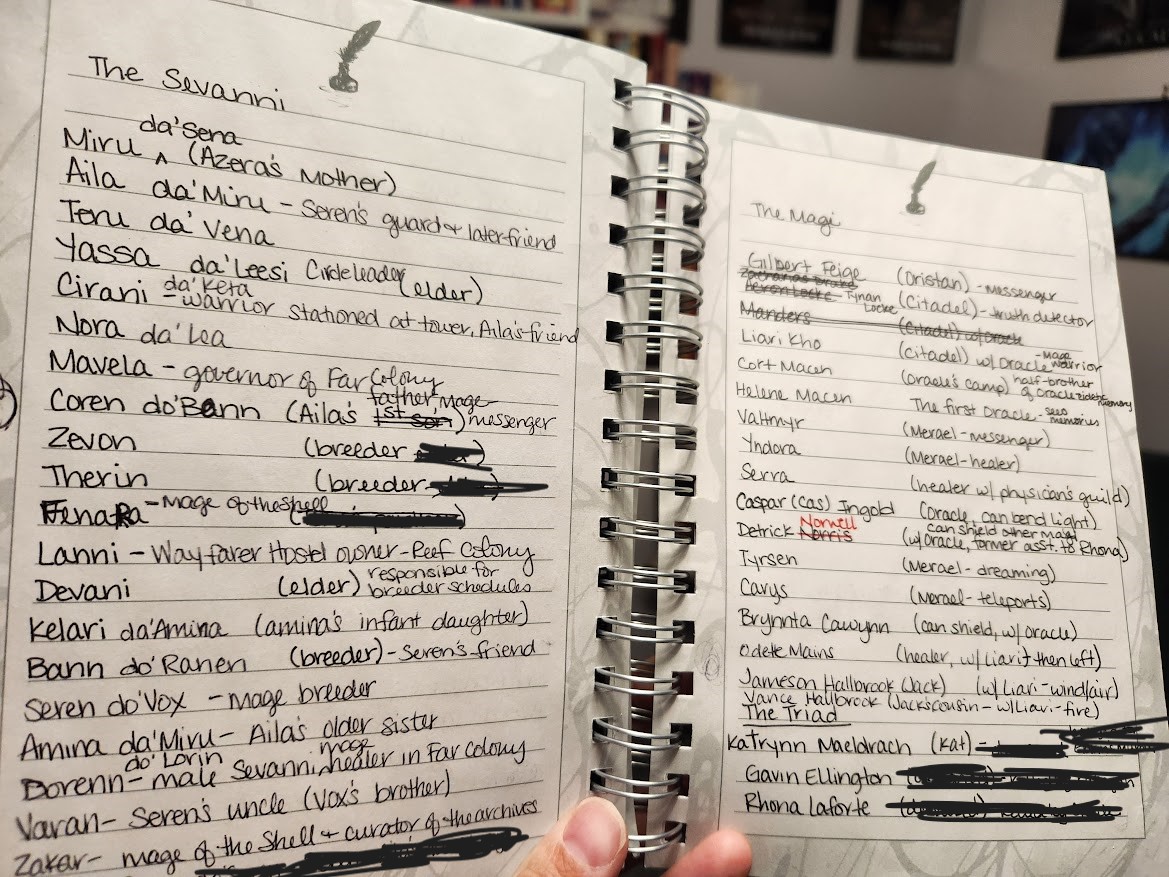 The Sevanni
da'Sena
Miru ^ (Azera's Mother)
Aila da'Miru - Seren's guard & later friend
Teru da'Vena
Yassa da'Leesi Circle leader (elder)
Cirani da'Keta - warrior stationed at tower, Aila's friend
Nora da'Lea
Mavela - governor of Far Colony
Coren do'Bann (Aila's father mage 1st son) messenger
Zevon (breeder
Therin (breeder-
FenaRa - Mage of the Shell
Lanni - Wayfarer Hostel owner - Reef Colony
Devani (elder) responsible for breeder schedules
Kelari da'Amina (amina's infant daughter)
Bann do'Ranen (breeder) - Seren's friend
Seren do'Vox - mage breeder
Amina da'Miru - Aila's older sister
Borenn do'Lorin - male Sevanni, mage healer in Far Colony
Varan - Seren's uncle (Vox's brother)
Zakar - mage of the Shell & curator of the archives
The Magi
Gilbert Feige (Oristan) - messenger
Aevon Locke Tynan Locke (Citadel) - truth detector
Manders (Citadel) w/ Oracle
Liari Kho (citadel) w/ Oracle - mage warrior
Cort Macen (Oracle's camp) half-brother of Oracle eidetic memory
Helene Macen The first Oracle - sees memories
Valtmyr (Merael - messenger)
Yndora (Merael - healer)
Serra (healer w/ physician's guild)
Caspar (Cas) Ingold (Oracle, can bend light)
Detrick Norris Norwell can shield other magi (w/ Oracle, former asst. to Rhona)
Tyrsen (Merael - dreaming)
Carys (Merael - teleports)
Brynnta Cawynn (can shield, w/ Oracle)
Odete Mains (healer, w/ Liari then left)
Jameson Hallbrook (Jack) (w/ Liari - wind/air)
Vance Hallbrook (Jack's cousin - w/ Liari - fire)
The Triad
Katrynn Maeldrach (Kat)
Gavin Ellington
Rhona Laforte